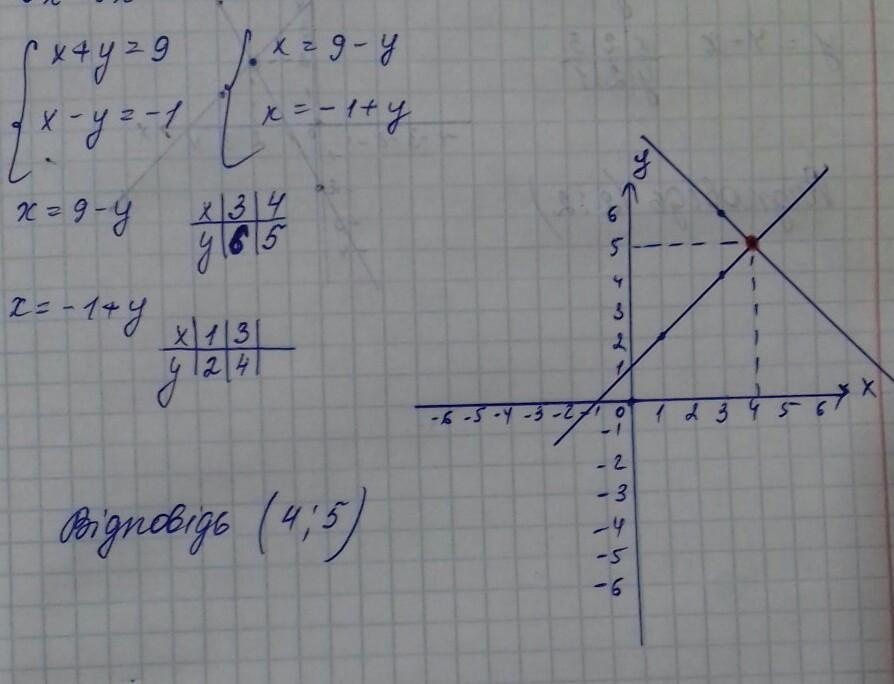 x + y = 9
x - y = -1
x = 9 - y
x = -1 + y
x = 9 - y
x 3 4
y 6 5
x = -1 + y
x 1 3
y 2 4
Відповідь (4; 5)
y
6
5
4
3
2
1
-6 -5 -4 -3 -2 -1 0 1 2 3 4 5 6 7 x
-1
-2
-3
-4
-5
-6